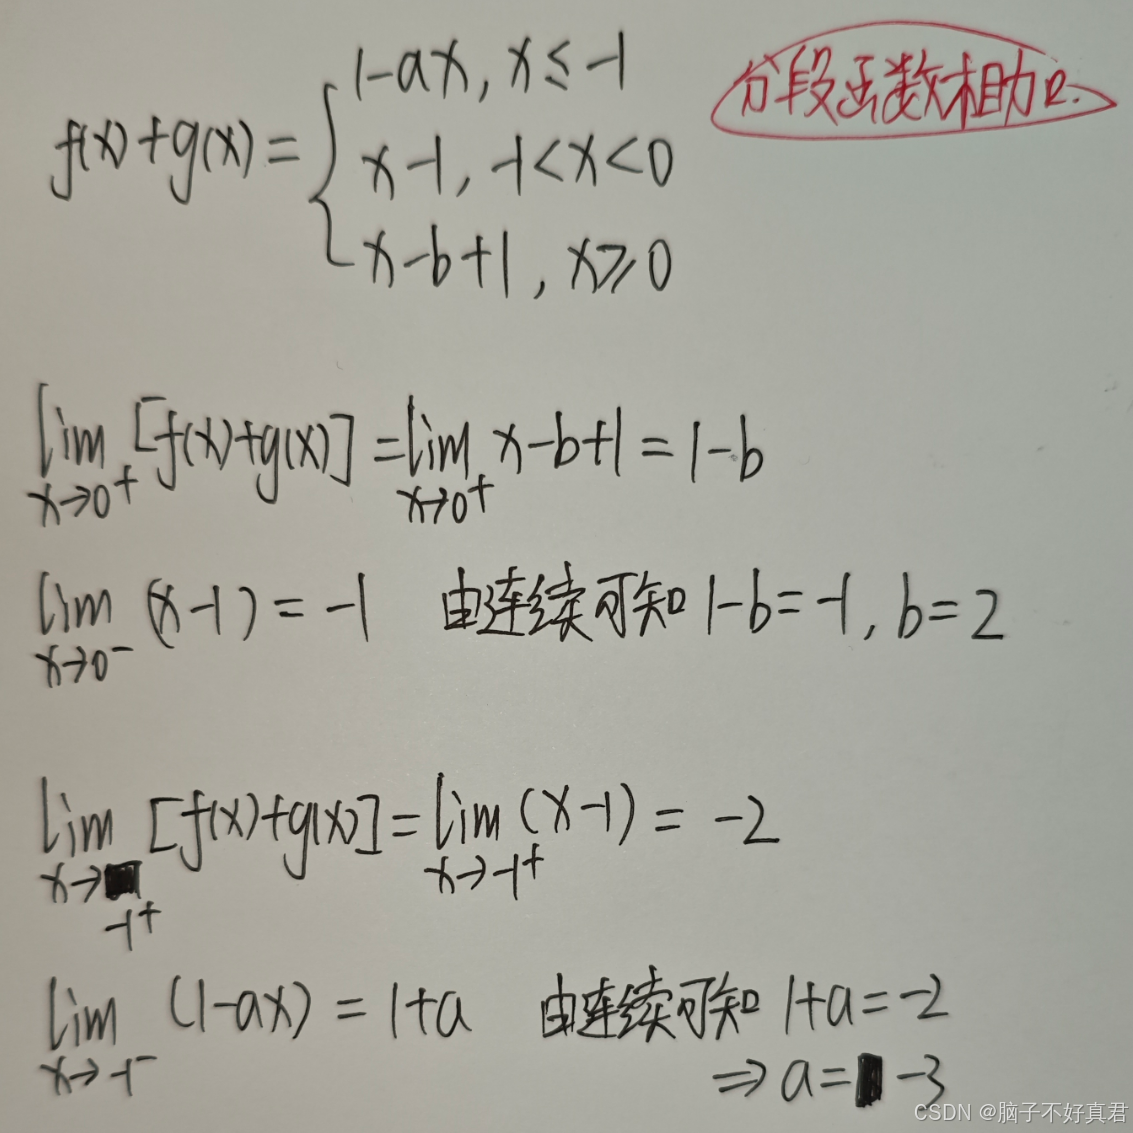 f(x)+g(x)={
1-ax, x≤-1
x-1, -1<x<0
x-b+1, x≥0
分段函数相加.
lim x→0⁺ [f(x)+g(x)]=lim x→0⁺ x-b+1=1-b
lim x→0⁻ (x-1)=-1 由连续可知 1-b=-1, b=2
lim x→-1⁺ [f(x)+g(x)]=lim x→-1⁺ (x-1)=-2
lim x→-1⁻ (1-ax)=1+a 由连续可知 1+a=-2
⇒a=-3
CSDN @脑子不好真君